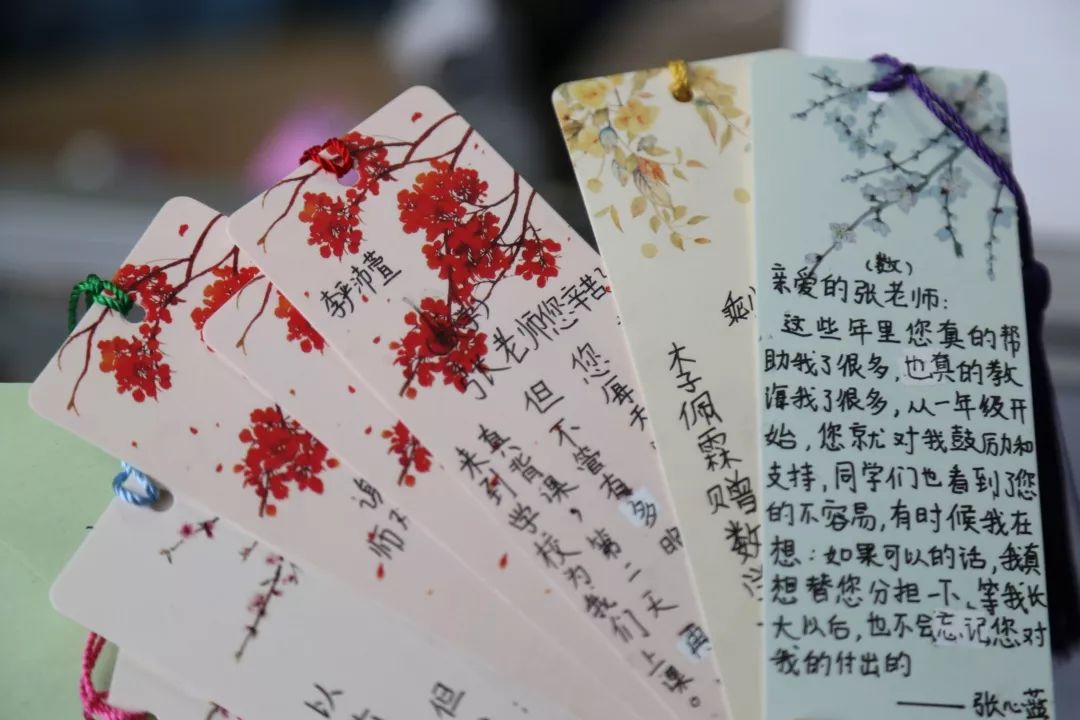 李沛萱
张老师您辛苦
您每天
但不管有多
真背课，第二天再
来到学校为我们上课。
师
以
但
李佩霖赠数
(数)
亲爱的张老师:
这些年里您真的帮
助我了很多,也真的教
诲我了很多,从一年级开
始,您就对我鼓励和
支持,同学们也看到了您
的不容易,有时候我在
想:如果可以的话,我真
想替您分担一下、等我长
大以后,也不会忘记您对
我的付出的
——张心蓝